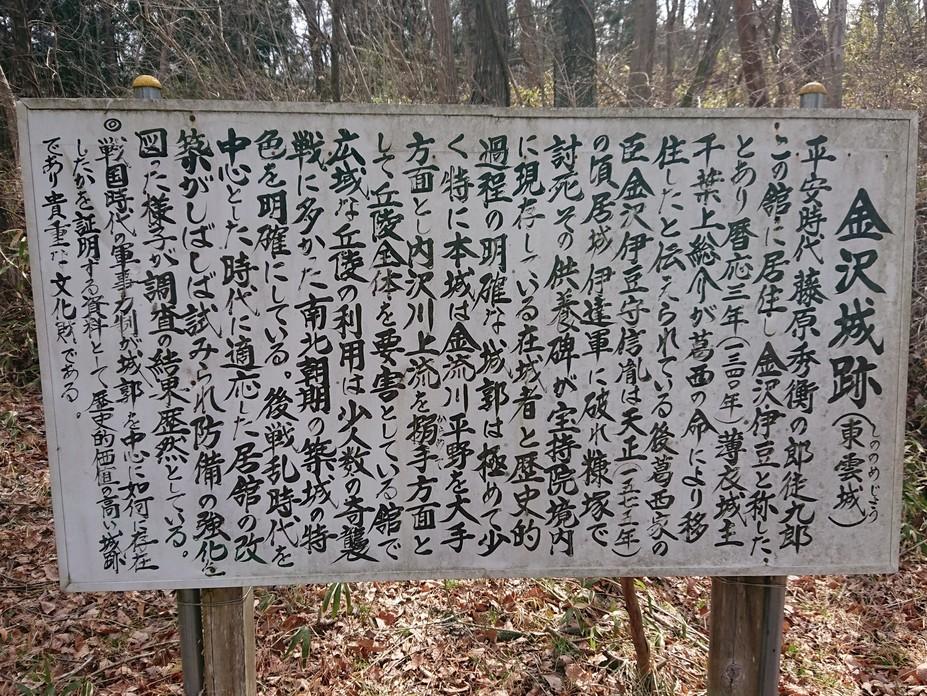 金沢城跡(東雲城)
しののめじょう
平安時代 藤原秀衡の郎徒九郎
この館に居住し金沢伊豆と称した
とあり 暦応三年(一三四〇年) 薄衣城主
千葉上総介が葛西の命により移
住したと伝えられている後葛西家の
臣金沢伊豆守信胤は天正(一五七三年)
の頃居城 伊達軍に破れ 糠塚で
討死その供養碑が宝持院境内
に現存している在城者と歴史的
過程の明確な城郭は極めて少
く特に本城は金流川平野を大手
方面とし内沢川上流を搦手方面と
からめて
して丘陵全体を要害としている館で
広域な丘陵の利用は少人数の奇襲
戦に多かった南北朝期の築城の特
色を明確にしている。後戦乱時代を
中心とした時代に適応した居館の改
築がしばしば試みられ防備の強化を
図った様子が調査の結果歴然としている。
◎戦国時代の軍事力側が城郭を中心に如何に存在
したかを証明する資料として歴史的価値の高い城跡
であり貴重な文化財である。